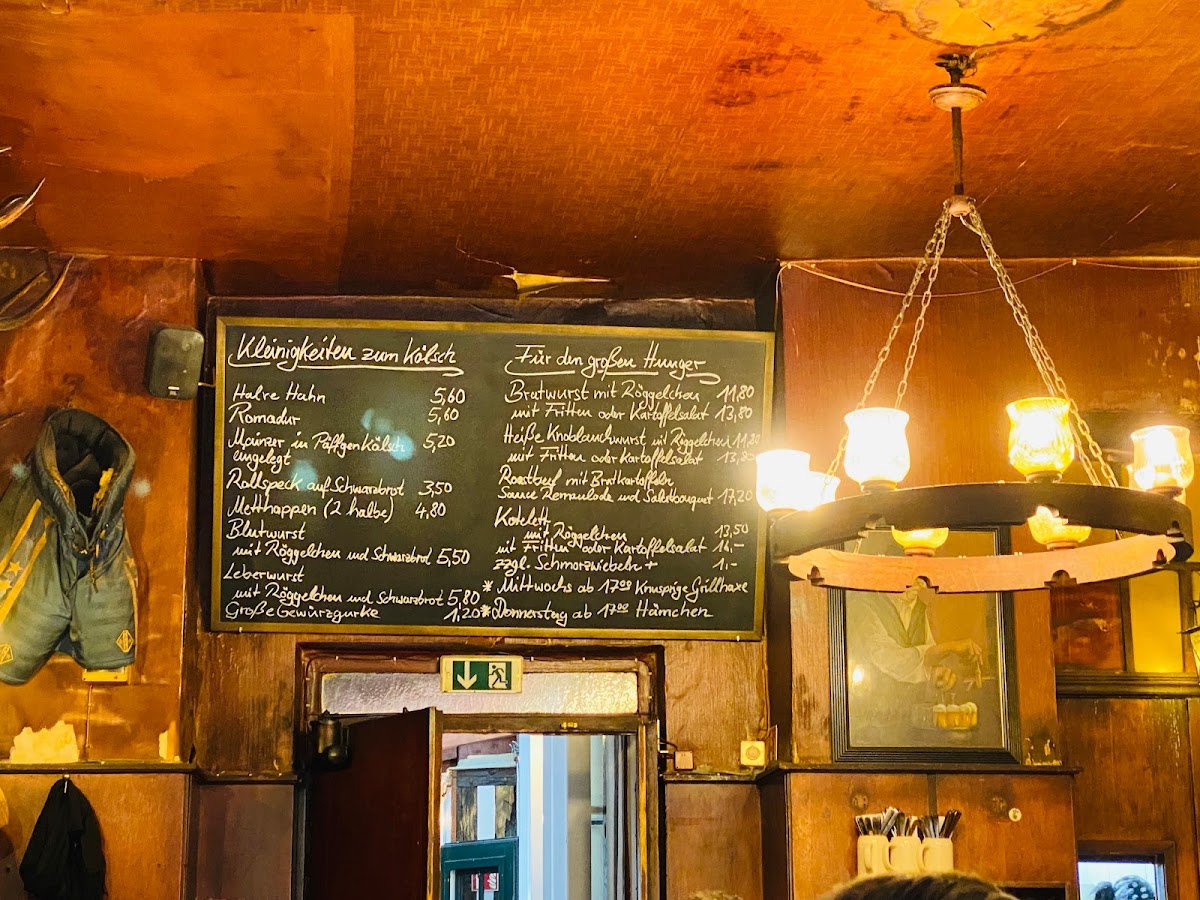 Kleinigkeiten zum Kölsch
Halve Hahn 5,60
Romadur 5,60
Mainzer in Päffgen Kölsch 5,20
eingelegt
Rollspeck auf Schwarzbrot 3,50
Metthappen (2 halbe) 4,80
Blutwurst
mit Röggelchen und Schwarzbrot 5,50
Leberwurst
mit Röggelchen und Schwarzbrot 5,80
Große Gewürzgurke 1,20
Für den großen Hunger
Bratwurst mit Röggelchen 11,80
mit Fritten oder Kartoffelsalat 13,80
Heiße Knoblauchwurst mit Röggelchen 11,20
mit Fritten oder Kartoffelsalat 13,80
Roastbeef mit Bratkartoffeln
Sauce Remoulade und Salatbouquet 17,20
Kotelett
mit Röggelchen 13,50
mit Fritten oder Kartoffelsalat 16,-
zzgl. Schmorzwiebeln + 1,-
* Mittwochs ab 17⁰⁰ Knusprige Grillhaxe
* Donnerstag ab 17⁰⁰ Hämchen